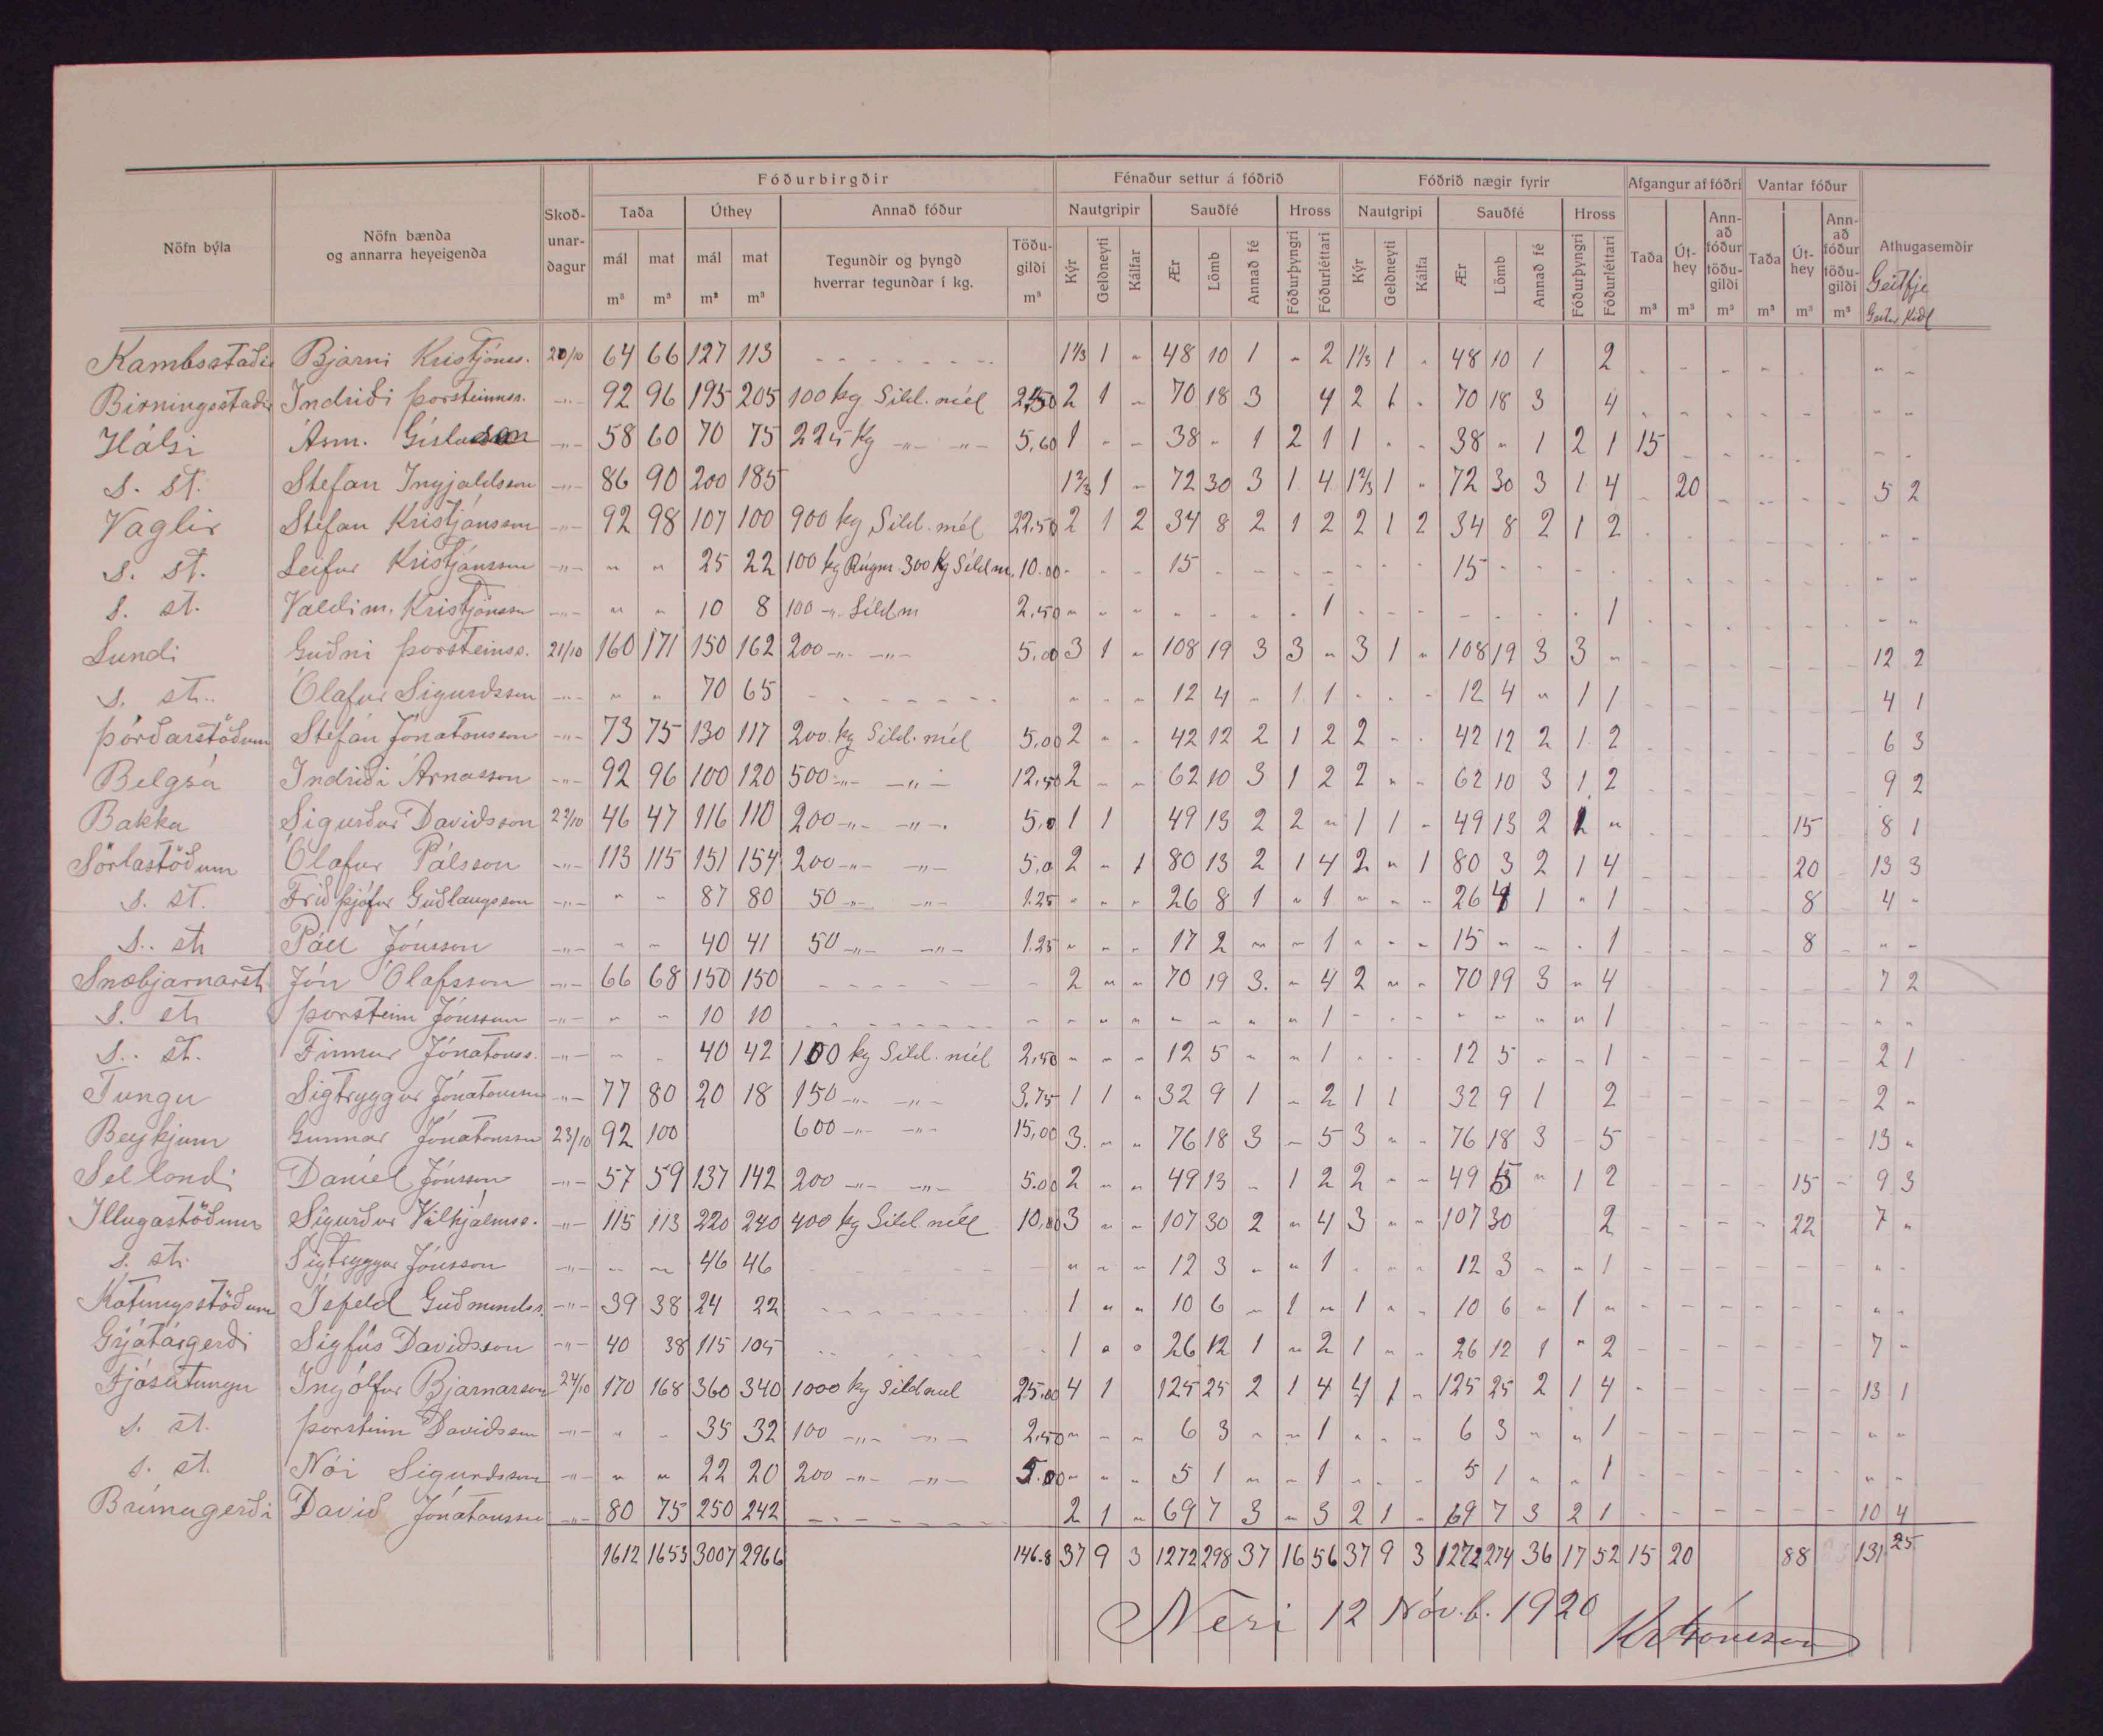 Fóðurbirgðir Fénaður settur á fóðrið Fóðrið nægir fyrir Afgangur af fóðri Vantar fóður
Nöfn býla Nöfn bænda og annarra heyeigenda Skoð-unar-dagur Taða Úthey Annað fóður Nautgripir Sauðfé Hross Nautgripi Sauðfé Hross Athugasemdir
mál m³ mat m³ mál m³ mat m³ Tegundir og þyngd hverrar tegundar í kg. Töðu-gildi m³ Kýr Geldneyti Kálfar Ær Lömb Annað fé Fóðurþyngri Fóðurléttari Kýr Geldneyti Kálfa Ær Lömb Annað fé Fóðurþyngri Fóðurléttari Taða m³ Út-hey m³ Ann-að fóður töðu-gildi m³ Taða m³ Út-hey m³ Ann-að fóður töðu-gildi m³ Geitfje Geitur Kiðl
Kambsstaðir Bjarni Kristjánss. 20/10 64 66 127 113 1⅓ 1 " 48 10 1 " 2 1⅓ 1 " 48 10 1 2
Birningsstaðir Indriði Þorsteinss. -"- 92 96 195 205 100 kg Síld. mél 2,50 2 1 - 70 18 3 4 2 1 - 70 18 3 4
Hálsi Árm. Gíslason -"- 58 60 70 75 225 kg -"- -"- 5,60 1 - - 38 - 1 2 1 1 - - 38 " 1 2 1 15
s. st. Stefan Ingjaldsson -"- 86 90 200 185 1⅔ 1 - 72 30 3 1 4 1⅔ 1 " 72 30 3 1 4 - 20 5 2
Vaglir Stefan Kristjánsson -"- 92 98 107 100 900 kg Síld. mél 22.50 2 1 2 34 8 2 1 2 2 1 2 34 8 2 1 2
s. st. Leifur Kristjánsson -"- " " 25 22 100 kg Rúgm. 300 kg Síldm. 10.00 - - - 15 - - - - - - - 15
s. st. Valdim. Kristjánsson -"- " " 10 8 100 -"- Síldm 2,50 " " " - - - - 1 - - - - - - - 1
Lundi Guðni Þorsteinss. 21/10 160 171 150 162 200 -"- -"- 5,00 3 1 " 108 19 3 3 " 3 1 " 108 19 3 3 " 12 2
s. st. Ólafur Sigurdsson -"- " " 70 65 " " " 12 4 - 1 1 - - - 12 4 " 1 1 4 1
Þórðarstöðum Stefán Jónatansson -"- 73 75 130 117 200 kg Síld. mél 5,00 2 " " 42 12 2 1 2 2 - - 42 12 2 1 2 6 3
Belgsá Indriði Árnason -"- 92 96 100 120 500 -"- -"- 12,50 2 - - 62 10 3 1 2 2 " - 62 10 3 1 2 9 2
Bakka Sigurður Davíðsson 22/10 46 47 116 110 200 -"- -"- 5,0 1 1 49 13 2 2 " 1 1 - 49 13 2 1 " 15 8 1
Sörlastöðum Ólafur Pálsson -"- 113 115 151 154 200 -"- -"- 5,0 2 " 1 80 13 2 1 4 2 " 1 80 3 2 1 4 20 13 3
s. st. Friðþjófur Guðlaugsson -"- " - 87 80 50 -"- -"- 1.25 " " " 26 8 1 " 1 " - - 26 4 1 " 1 8 4 -
s. st. Páll Jónsson -"- - - 40 41 50 -"- -"- 1.25 " " " 17 2 " - 1 - - - 15 " - - 1 8 " -
Snæbjarnarst. Jón Ólafsson -"- 66 68 150 150 2 " " 70 19 3. - 4 2 " " 70 19 3 " 4 7 2
s. st. Þorsteinn Jónsson -"- " - 10 10 - " " " - " " 1 - - - " - " " 1
s. st. Finnur Jónatanss. -"- - - 40 42 100 kg Síld. mél 2,50 - - - 12 5 - " 1 - - - 12 5 - - 1 2 1
Tungu Sigtryggur Jónatansson -"- 77 80 20 18 150 -"- -"- 3,75 1 1 " 32 9 1 - 2 1 1 32 9 1 2 2 "
Reykjum Gunnar Jónatansson 23/10 92 100 600 -"- -"- 15,00 3. " - 76 18 3 - 5 3 " - 76 18 3 - 5 13 "
Sellandi Daníel Jónsson -"- 57 59 137 142 200 -"- -"- 5.00 2 " " 49 13 - 1 2 2 - - 49 5 " 1 2 15 9 3
Illugastöðum Sigurður Vilhjálmss. -"- 115 113 220 240 400 kg Síld mél 10,00 3 " - 107 30 2 " 4 3 " - 107 30 2 22 7 "
s. st. Sigtryggur Jónsson -"- - - 46 46 " - - 12 3 - " 1 - - - 12 3 - - 1
Kotungsstöðum Ísfeld Guðmundss. -"- 39 38 24 22 1 " " 10 6 - 1 " 1 " - 10 6 " 1 "
Grjótárgerði Sigfús Davíðsson -"- 40 38 115 105 1 " " 26 12 1 " 2 1 " - 26 12 1 " 2 7 -
Fjósatungu Ingólfur Bjarnarson 24/10 170 168 360 340 1000 kg Síldmél 25.00 4 1 125 25 2 1 4 4 1 - 125 25 2 1 4 13 1
s. st. Þorsteinn Davíðsson -"- " - 35 32 100 -"- -"- 2,50 " - - 6 3 " - 1 - - - 6 3 - " 1
s. st. Nói Sigurdsson -"- " " 22 20 200 -"- -"- 5.00 " - - 5 1 " - 1 - - - 5 1 " " 1
Brúnagerði Davíð Jónatansson -"- 80 75 250 242 2 1 " 69 7 3 " 3 2 1 - 69 7 3 2 1 10 4
1612 1653 3007 2966 146.8 37 9 3 1272 298 37 16 56 37 9 3 1272 274 36 17 52 15 20 88 131 25
Nesi 12 Nóv.b. 1920
Kr Jónsson